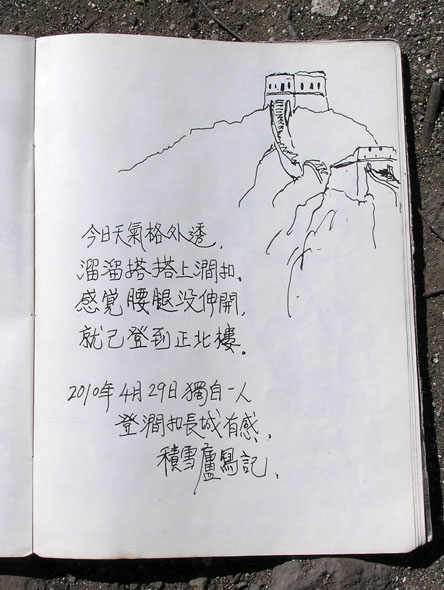 今日天氣格外透，
溜溜搭搭上澗扣。
感覚腰腿没伸開，
就已登到正北樓。
2010年4月29日獨自一人
登澗扣長城有感、
積雪廬寫記、